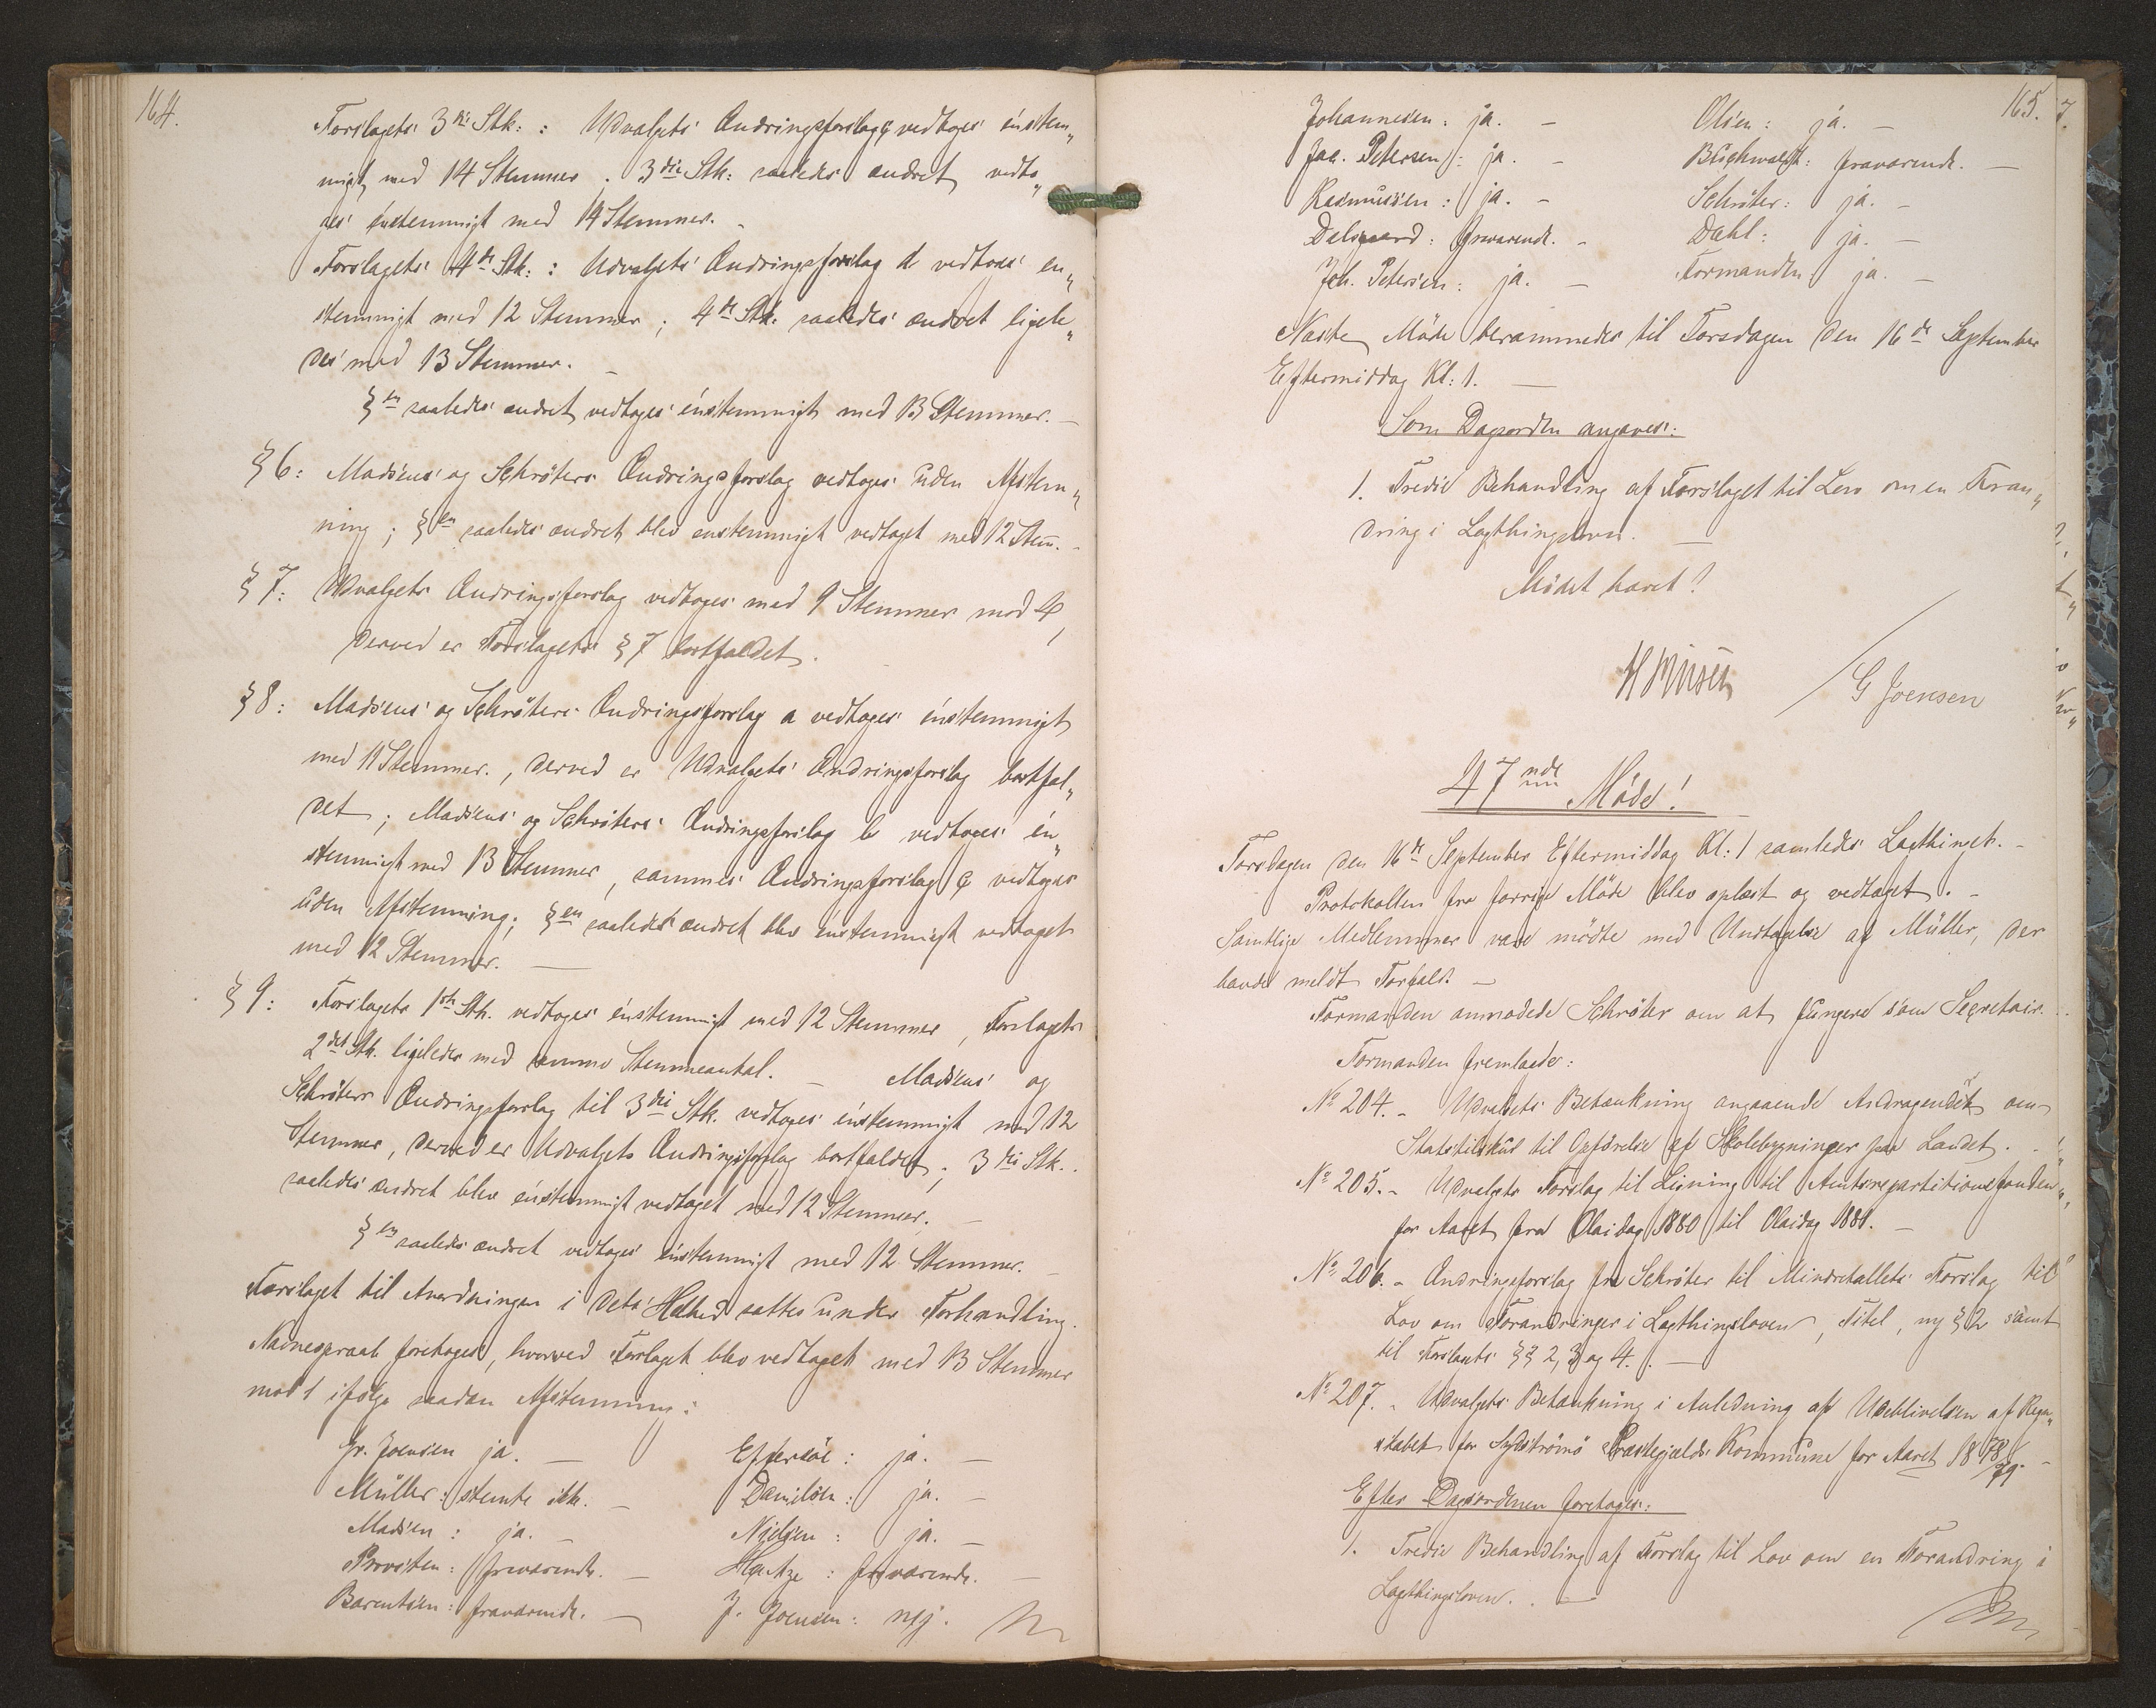 164.
Forslagets 3die Stk: : Udvalgets Ændringsforslag c vedtoges énstem„
migt med 14 Stemmer; 3die Stk: saaledes ændret vedto„
ges énstemmigt med 14 Stemmer. –
Forslagets 4de Stk: : Udvalgets Ændringsforslag d vedtoges en„
stemmigt med 12 Stemmer; 4de Stk: saaledes ændret ligele„
des med 13 Stemmer. –
§en saaledes ændret vedtoges énstemmigt med 13 Stemmer. –
§ 6: Madsens og Schrøters Ændringsforslag vedtoges uden Afstem„
ning; §en saaledes ændret blev enstemmigt vedtaget med 12 Stem. –
§ 7: Udvalgets Ændringsforslag vedtoges med 9 Stemmer mod 4,
derved er Forslagets § 7 bortfaldet.
§ 8: Madsens og Schrøters Ændringsforslag a vedtoges énstemmigt
med 11 Stemmer., derved er Udvalgets Ændringsforslag bortfal„
det; Madsens og Schrøters Ændringsforslag b vedtoges én„
stemmigt med 13 Stemmer, sammes Ændringsforslag c vedtoges
uden Afstemning; §en saaledes ændret blev énstemmigt vedtaget
med 12 Stemmer. –
§ 9: Forslagets 1ste Stk. vedtoges énstemmigt med 12 Stemmer, Forslagets
2det Stk. ligeledes med samme Stemmeantal. – Madsens og
Schrøters Ændringsforslag til 3die Stk. vedtoges énstemmigt med 12
Stemmer, derved er Udvalgets Ændringsforslag bortfaldet; 3die Stk.
saaledes ændret blev énstemmigt vedtaget med 12 Stemmer. –
§en saaledes ændret vedtoges énstemmigt med 12 Stemmer. –
Forslaget til Anordningen i dets Helhed sattes under Forhandling.
Navneopraab foretoges, hvorved Forslaget blev vedtaget med 13 Stemmer
mod 1 ifølge saadan Afstemning:
Gr. Joensen ja. – Effersøe: ja. –
Müller: stemte ikke. – Danielsen: ja. –
Madsen: ja. – Njelsen: ja. –
Provsten: fraværende. – Hentze: fraværende. –
Barentsen: fraværende. – J. Joensen: nej.
165.
Johannesen: ja. – Olsen: ja. –
Jac. Petersen: ja. – Buchwaldt: fraværende. –
Rasmussen: ja. – Schrøter: ja. –
Dalsgaard: fraværende. – Dahl: ja. –
Joh. Petersen: ja. – Formanden ja. –
Næste Møde berammedes til Torsdagen den 16de September
Eftermiddag Kl: 1. –
Som Dagsorden angaves:
1. Tredie Behandling af Forslaget til Lov om en Foran„
dring i Lagthingsloven. –
Mødet hævet!
/ G Joensen
47nde Møde!
Torsdagen den 16de September Eftermiddag Kl: 1 samledes Lagthinget. –
Protokollen fra forrige Møde blev oplæst og vedtaget. –
Samtlige Medlemmer vare mødte med Undtagelse af Müller, der
havde meldt Forfald. –
Formanden anmodede Schrøter om at fungere som Secretair.
Formanden fremlagde:
No 204. – Udvalgets Betænkning angaaende Andragendet om
Statstilskud til Opførelse af Skolebygninger paa Landet. –
No 205. – Udvalgets Forslag til Ligning til Amtsrepartitionsfonden„
for Aaret fra Olaidag 1880 til Olaidag 1881. –
No 206. – Ændringsforslag fra Schrøter til Mindretallets Forslag til
Lov om Forandringer i Lagthingsloven, Titel, ny § 2 samt
til Forslagets §§ 2, 3 og 4. –
No 207. – Udvalgets Betænkning i Anledning af Udeblivelsen af Regn„
skabet for Sydstrømø Præstegjælds Kommune for Aaret 1878/79. –
Efter Dagsordenen foretoges:
1. Tredie Behandling af Forslag til Lov om en Forandring i
Lagthingsloven. –